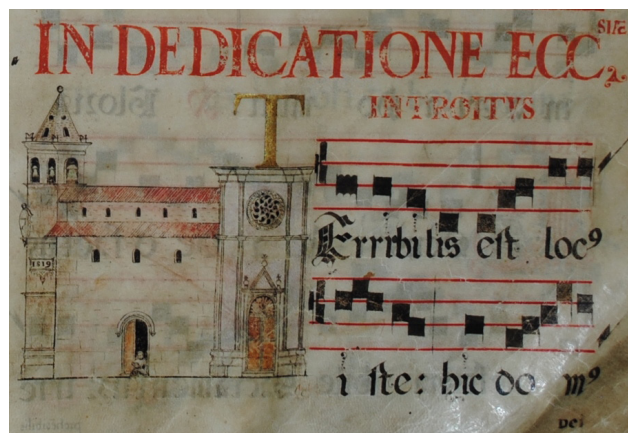 IN DEDICATIONE ECC SIÆ
INTROITVS
T
Erribilis est locꝰ
1819
i ste: hic do mꝰ
Dei